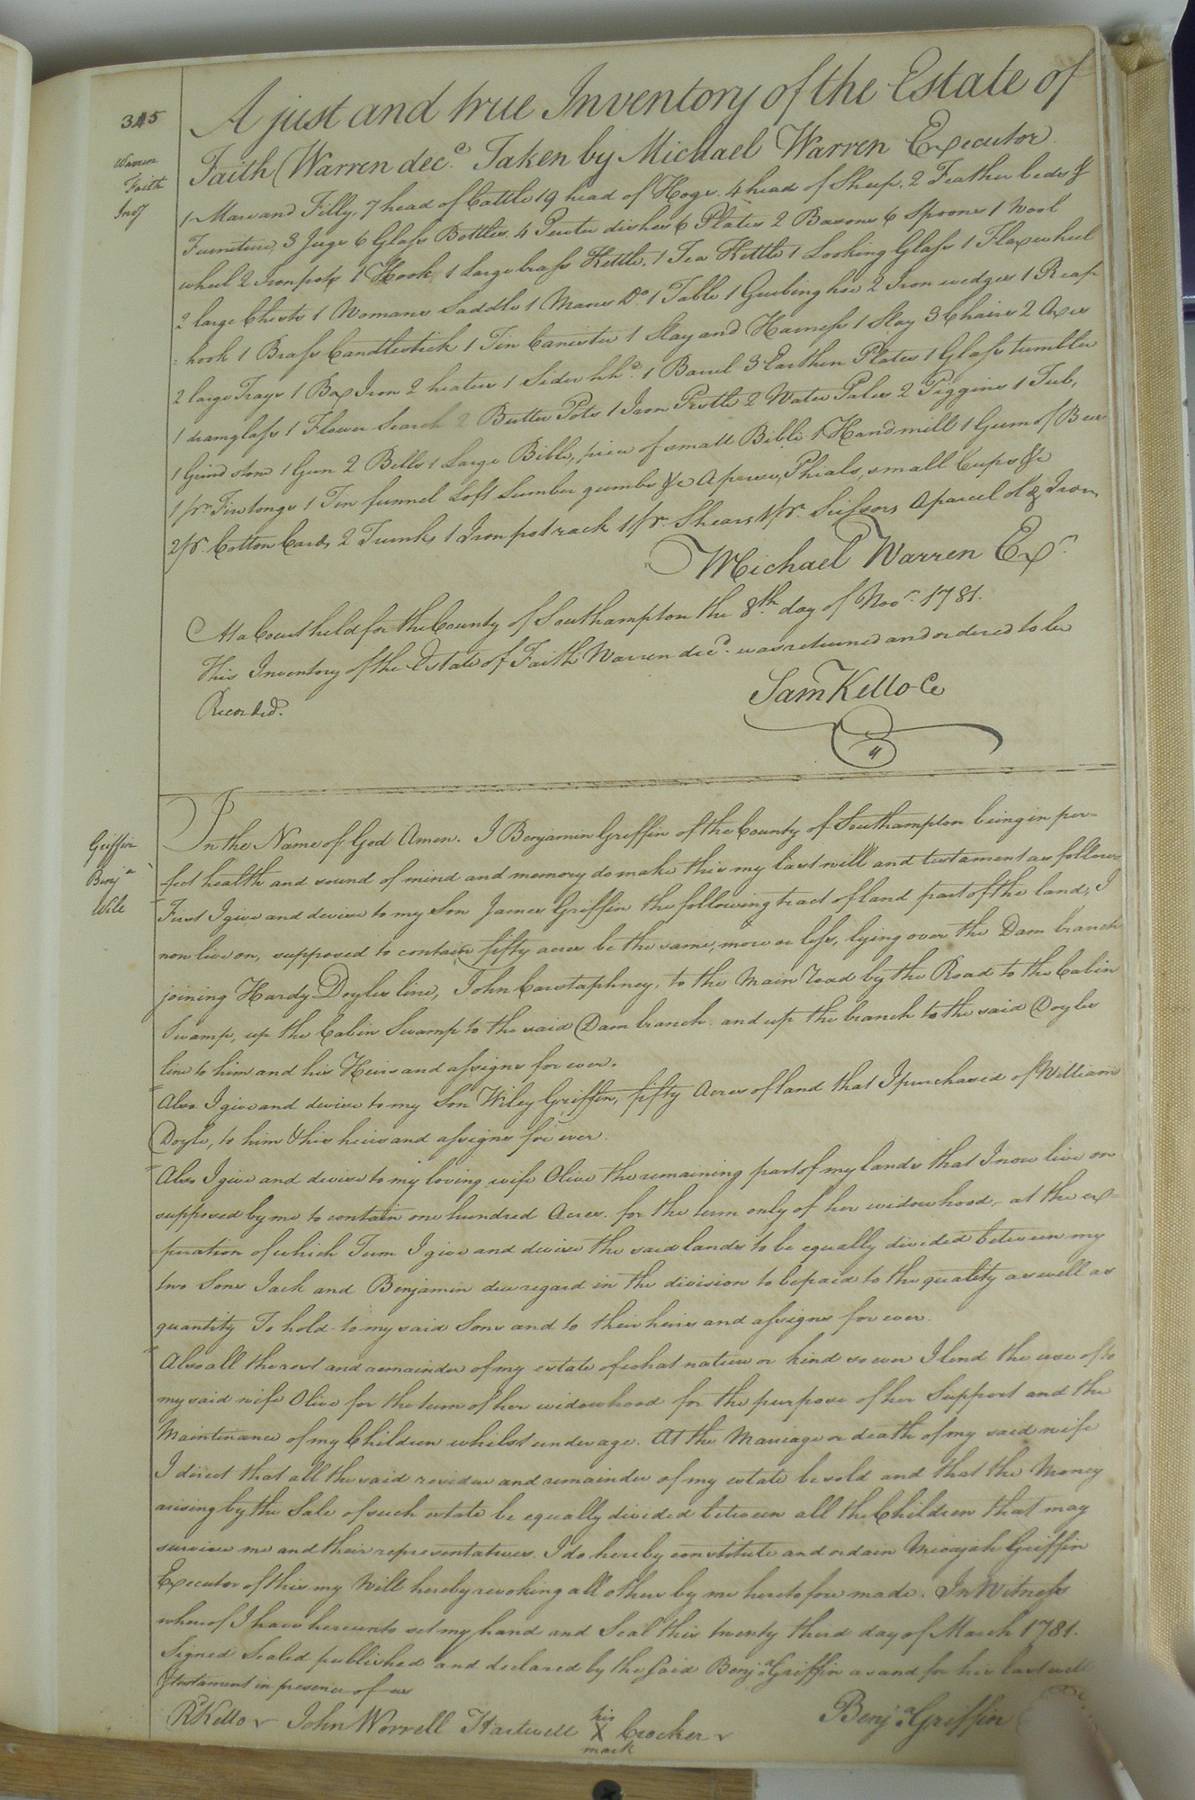 345
A just and true Inventory of the Estate of
Warren
Faith
Invy
Faith Warren decd. Taken by Michael Warren Executor.
1 Mare and Filly, 7 head of Cattle 19 head of Hogs. 4 head of Sheep. 2 Feather beds &
Furniture, 3 Jugs 6 Glass Bottles 4 Pewter dishes 6 Plates 2 Basons 6 Spoons 1 Wool
wheel 2 Iron pots 1 Hook 1 Large brass Kettle. 1 Tea Kettle 1 Looking Glass 1 Flaxwheel
2 large Chests 1 Womans Saddle 1 Mans Do 1 Table 1 Grubing hoe 2 Iron wedges 1 Reap
hook 1 Brass Candlestick 1 Tin Canister 1 Slay and Harness 1 Slay 3 Chairs 2 Axes
2 large Trays 1 Box Iron 2 heaters 1 Sider hhd. 1 Barrel 3 Earthen Plates 1 Glass tumbler
1 dramglass 1 Flower Search 2 Butter Pots 1 Iron Pestle 2 Water Pales 2 Piggins 1 Tub,
1 Grind stone 1 Gun 2 Bells 1 Large Bible, piece of small Bible 1 Hand mill 1 Gum of Bees
1 pr. Fire tongs 1 Tin funnel Loft Lumber gumbs &c A parcel, Phials, small Cups &c
2 pr. Cotton Cards 2 Trunks 1 Iron pot rack 1 pr. Shears 1 pr. Scissors A parcel old Iron
Michael Warren Exr.
At a Court held for the County of Southampton the 8th. day of Novr. 1781.
This Inventory of the Estate of Faith Warren decd. was returned and ordered to be
Recorded.
Sam Kello Cc
Griffin
Benja
Will
In the Name of God Amen. I Benjamin Griffin of the County of Southampton being in per-
fect health and sound of mind and memory do make this my last will and testament as follows
First I give and devise to my Son James Griffin the following tract of land part of the land, I
now live on, supposed to contain fifty acres be the same, more or less, lying over the Dam branch
joining Hardy Doyles line, John Carstaphney, to the Main road by the Road to the Cabin
Swamp, up the Cabin Swamp to the said Dam branch and up the branch to the said Doyles
line to him and his Heirs and assigns for ever.
Also I give and devise to my Son Wiley Griffin, fifty Acres of land that I purchased of William
Doyle, to him & his heirs and assigns for ever.
Also I give and devise to my loving wife Olive the remaining part of my lands that I now live on
supposed by me to contain one hundred Acres. for the term only of her widowhood, at the ex-
piration of which Term I give and devise the said lands to be equally divided between my
two Sons Jack and Benjamin due regard in the division to be paid to the quality as well as
quantity To hold to my said Sons and to their heirs and assigns for ever.
Also all the rest and remainder of my estate of what nature or kind so ever I lend the use of to
my said wife Olive for the term of her widowhood for the purpose of her Support and the
Maintenance of my Children whilst under age. At the Marriage or death of my said wife
I direct that all the said residue and remainder of my estate be sold and that the Money
arising by the Sale of such estate be equally divided between all the Children that may
survive me and their representatives. I do hereby constitute and ordain Micajah Griffin
Executor of this my Will hereby revoking all others by me heretofore made. In Witness
whereof I have hereunto set my hand and Seal this twenty third day of March 1781.
Signed Sealed published and declared by the said Benja Griffin as and for his last will
& testament in presence of us
Rd Kello John Worrell Hartwell his X mark Crocker
Benja Griffin